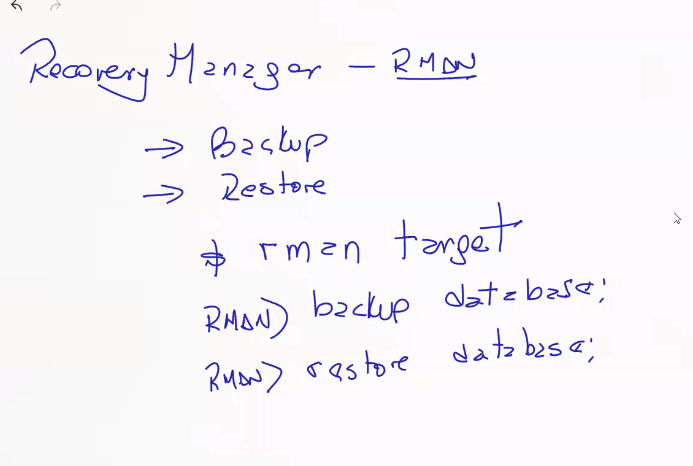 Recovery Manager - RMAN
→ Backup
→ Restore
$ rman target
RMAN> backup database;
RMAN> restore database;